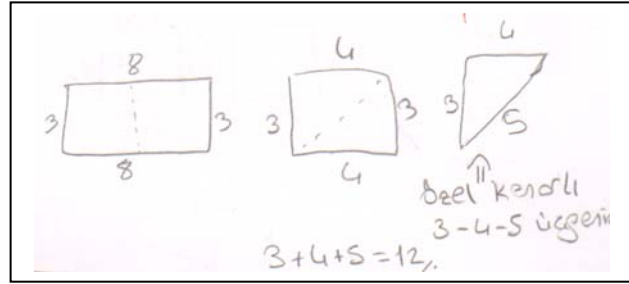 8
3 3
8
4
3 3
4
4
3 5
özel kenarlı
3-4-5 üçgeni
3+4+5=12